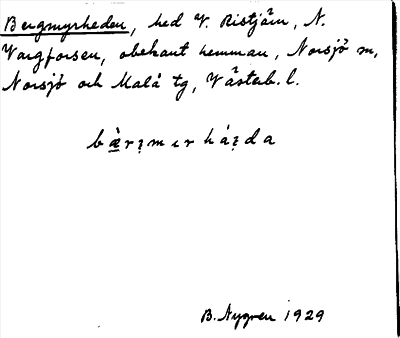 Bergmyrheden, hed V. Ristjärn, N.
Vargforsen, obekant hemman, Norsjö sn,
Norsjö och Malå tg, Västerb. l.
bær̥mırháẓda
B. Nygren 1929